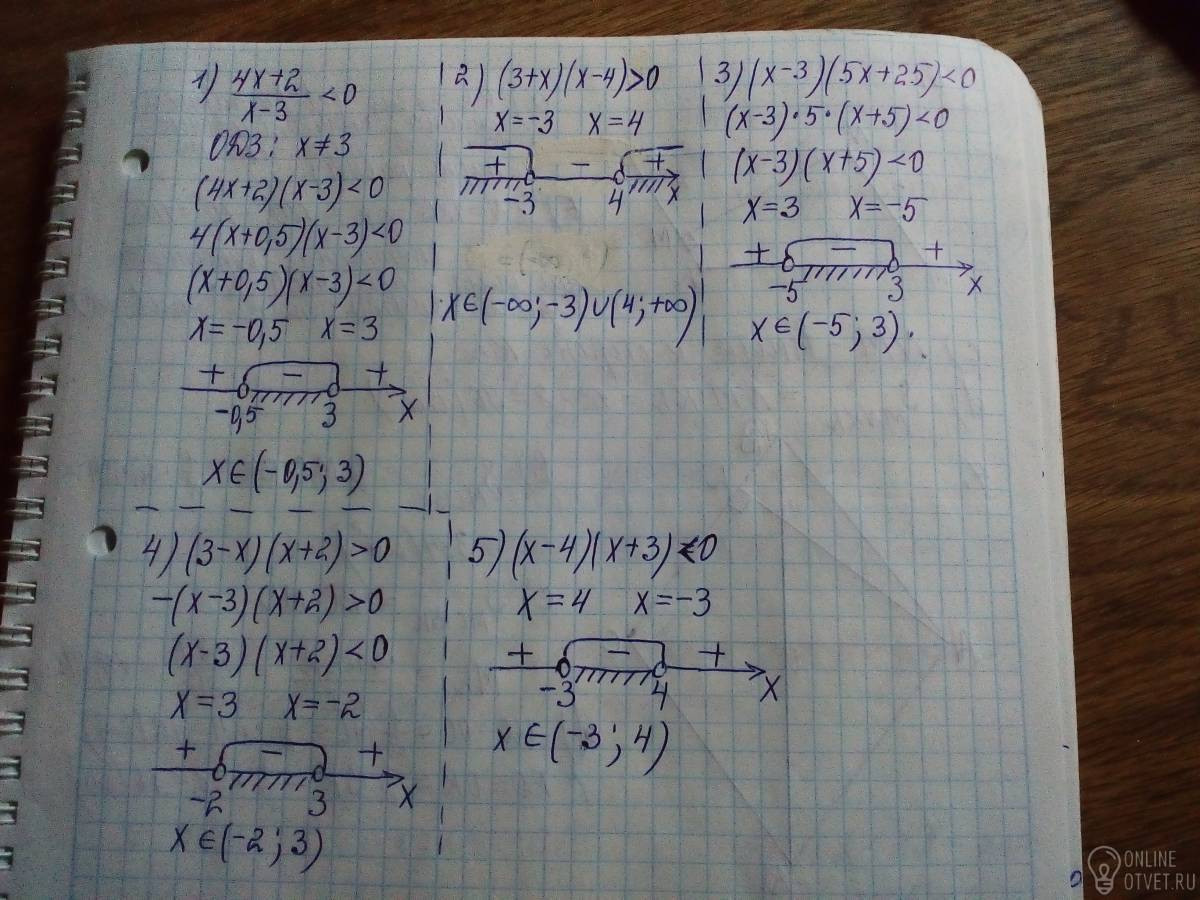 1) (4x+2)/(x-3) <0
ОДЗ: x≠3
(4x+2)(x-3)<0
4(x+0,5)(x-3)<0
(x+0,5)(x-3)<0
x=-0,5 x=3
+ - +
-0,5 3 x
x∈(-0,5; 3)
2) (3+x)(x-4)>0
x=-3 x=4
+ - +
-3 4 x
x∈(-∞; -3)∪(4; +∞)
3) (x-3)(5x+25)<0
(x-3)·5·(x+5)<0
(x-3)(x+5)<0
x=3 x=-5
+ - +
-5 3 x
x∈(-5; 3).
4) (3-x)(x+2)>0
-(x-3)(x+2)>0
(x-3)(x+2)<0
x=3 x=-2
+ - +
-2 3 x
x∈(-2; 3)
5) (x-4)(x+3)<0
x=4 x=-3
+ - +
-3 4 x
x∈(-3; 4)
ONLINE
OTVET.RU